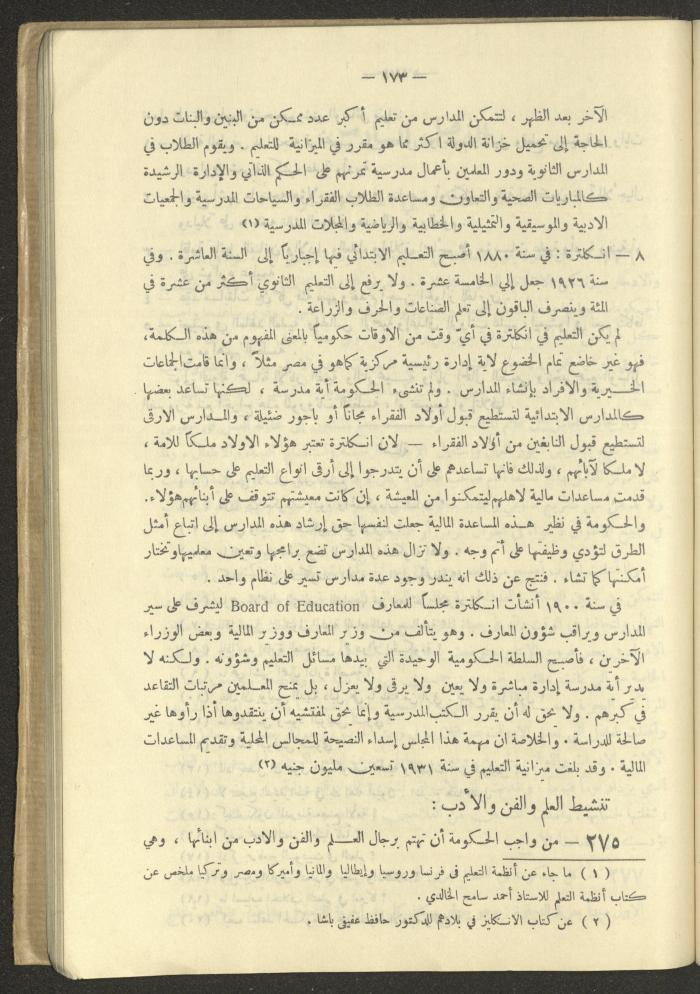 — ١٧٣ —
الآخر بعد الظهر ، لتتمكن المدارس من تعليم أكبر عدد ممكن من البنين والبنات دون
الحاجة إلى تحميل خزانة الدولة اكثر مما هو مقرر في الميزانية للتعليم . ويقوم الطلاب في
المدارس الثانوية ودور المعلمين بأعمال مدرسية تمرنهم على الحكم الذاتي والإدارة الرشيدة
كالمباريات الصحية والتعاون ومساعدة الطلاب الفقراء والسياحات المدرسية والجمعيات
الادبية والموسيقية والتمثيلية والخطابية والرياضية والمجلات المدرسية (١)
٨ — انكلترة : في سنة ١٨٨٠ أصبح التعليم الابتدائي فيها إجبارياً إلى السنة العاشرة . وفي
سنة ١٩٢٦ جعل إلي الخامسة عشرة . ولا يرفع إلى التعليم الثانوي أكثر من عشرة في
المئة وينصرف الباقون إلى تعلم الصناعات والحرف والزراعة .
لم يكن التعليم في انكلترة في أيّ وقت من الاوقات حكومياً بالمعنى المفهوم من هذه الكلمة،
فهو غير خاضع تمام الخضوع لاية إدارة رئيسية مركزية كماهو في مصر مثلاً ، وانما قامت الجماعات
الخيرية والافراد بإنشاء المدارس . ولم تنشىء الحكومة أية مدرسة ، لكنها تساعد بعضها
كالمدارس الابتدائية لتستطيع قبول أولاد الفقراء مجاناً أو باجور ضئيلة ، والمدارس الارقى
لتستطيع قبول النابغين من أولاد الفقراء — لان انكلترة تعتبر هؤلاء الاولاد ملكاً للامة ،
لا ملكا لآبائهم ، ولذلك فانها تساعدهم على أن يتدرجوا إلى أرقى انواع التعليم على حسابها ، وربما
قدمت مساعدات مالية لاهلهم ليتمكنوا من المعيشة ، إن كانت معيشتهم تتوقف على أبنائهم هؤلاء.
والحكومة في نظير هذه المساعدة المالية جعلت لنفسها حق إرشاد هذه المدارس إلى اتباع أمثل
الطرق لتؤدي وظيفتها على أتم وجه . ولا تزال هذه المدارس تضع برامجها وتعين معلميها وتختار
أمكنتها كما تشاء . فنتج عن ذلك انه يندر وجود عدة مدارس تسير على نظام واحد .
في سنة ١٩٠٠ أنشأت انكلترة مجلساً للمعارف Board of Education ليشرف على سير
المدارس ويراقب شؤون المعارف . وهو يتألف من وزير المعارف ووزير المالية وبعض الوزراء
الآخرين ، فأصبح السلطة الحكومية الوحيدة التي بيدها مسائل التعليم وشؤونه . ولكنه لا
يدير أية مدرسة إدارة مباشرة ولا يعين ولا يرقى ولا يعزل ، بل يمنح المعلمين مرتبات التقاعد
في كبرهم . ولا يحق له أن يقرر الكتب المدرسية وإنما يحق لمفتشيه أن ينتقدوها أذا رأوها غير
صالحة للدراسة . والخلاصة ان مهمة هذا المجلس إسداء النصيحة للمجالس المحلية وتقديم المساعدات
المالية . وقد بلغت ميزانية التعليم في سنة ١٩٣١ تسعين مليون جنيه (٢)
تنشيط العلم والفن والأدب :
٢٧٥ — من واجب الحكومة أن تهتم برجال العلم والفن والادب من ابنائها ، وهي
( ١ ) ما جاء عن أنظمة التعليم في فرنسا وروسيا وإيطاليا والمانيا وأميركا ومصر وتركيا ملخص عن
كتاب أنظمة التعلم للاستاذ أحمد سامح الخالدي .
( ٢ ) عن كتاب الانكليز في بلادهم للدكتور حافظ عفيفي باشا .